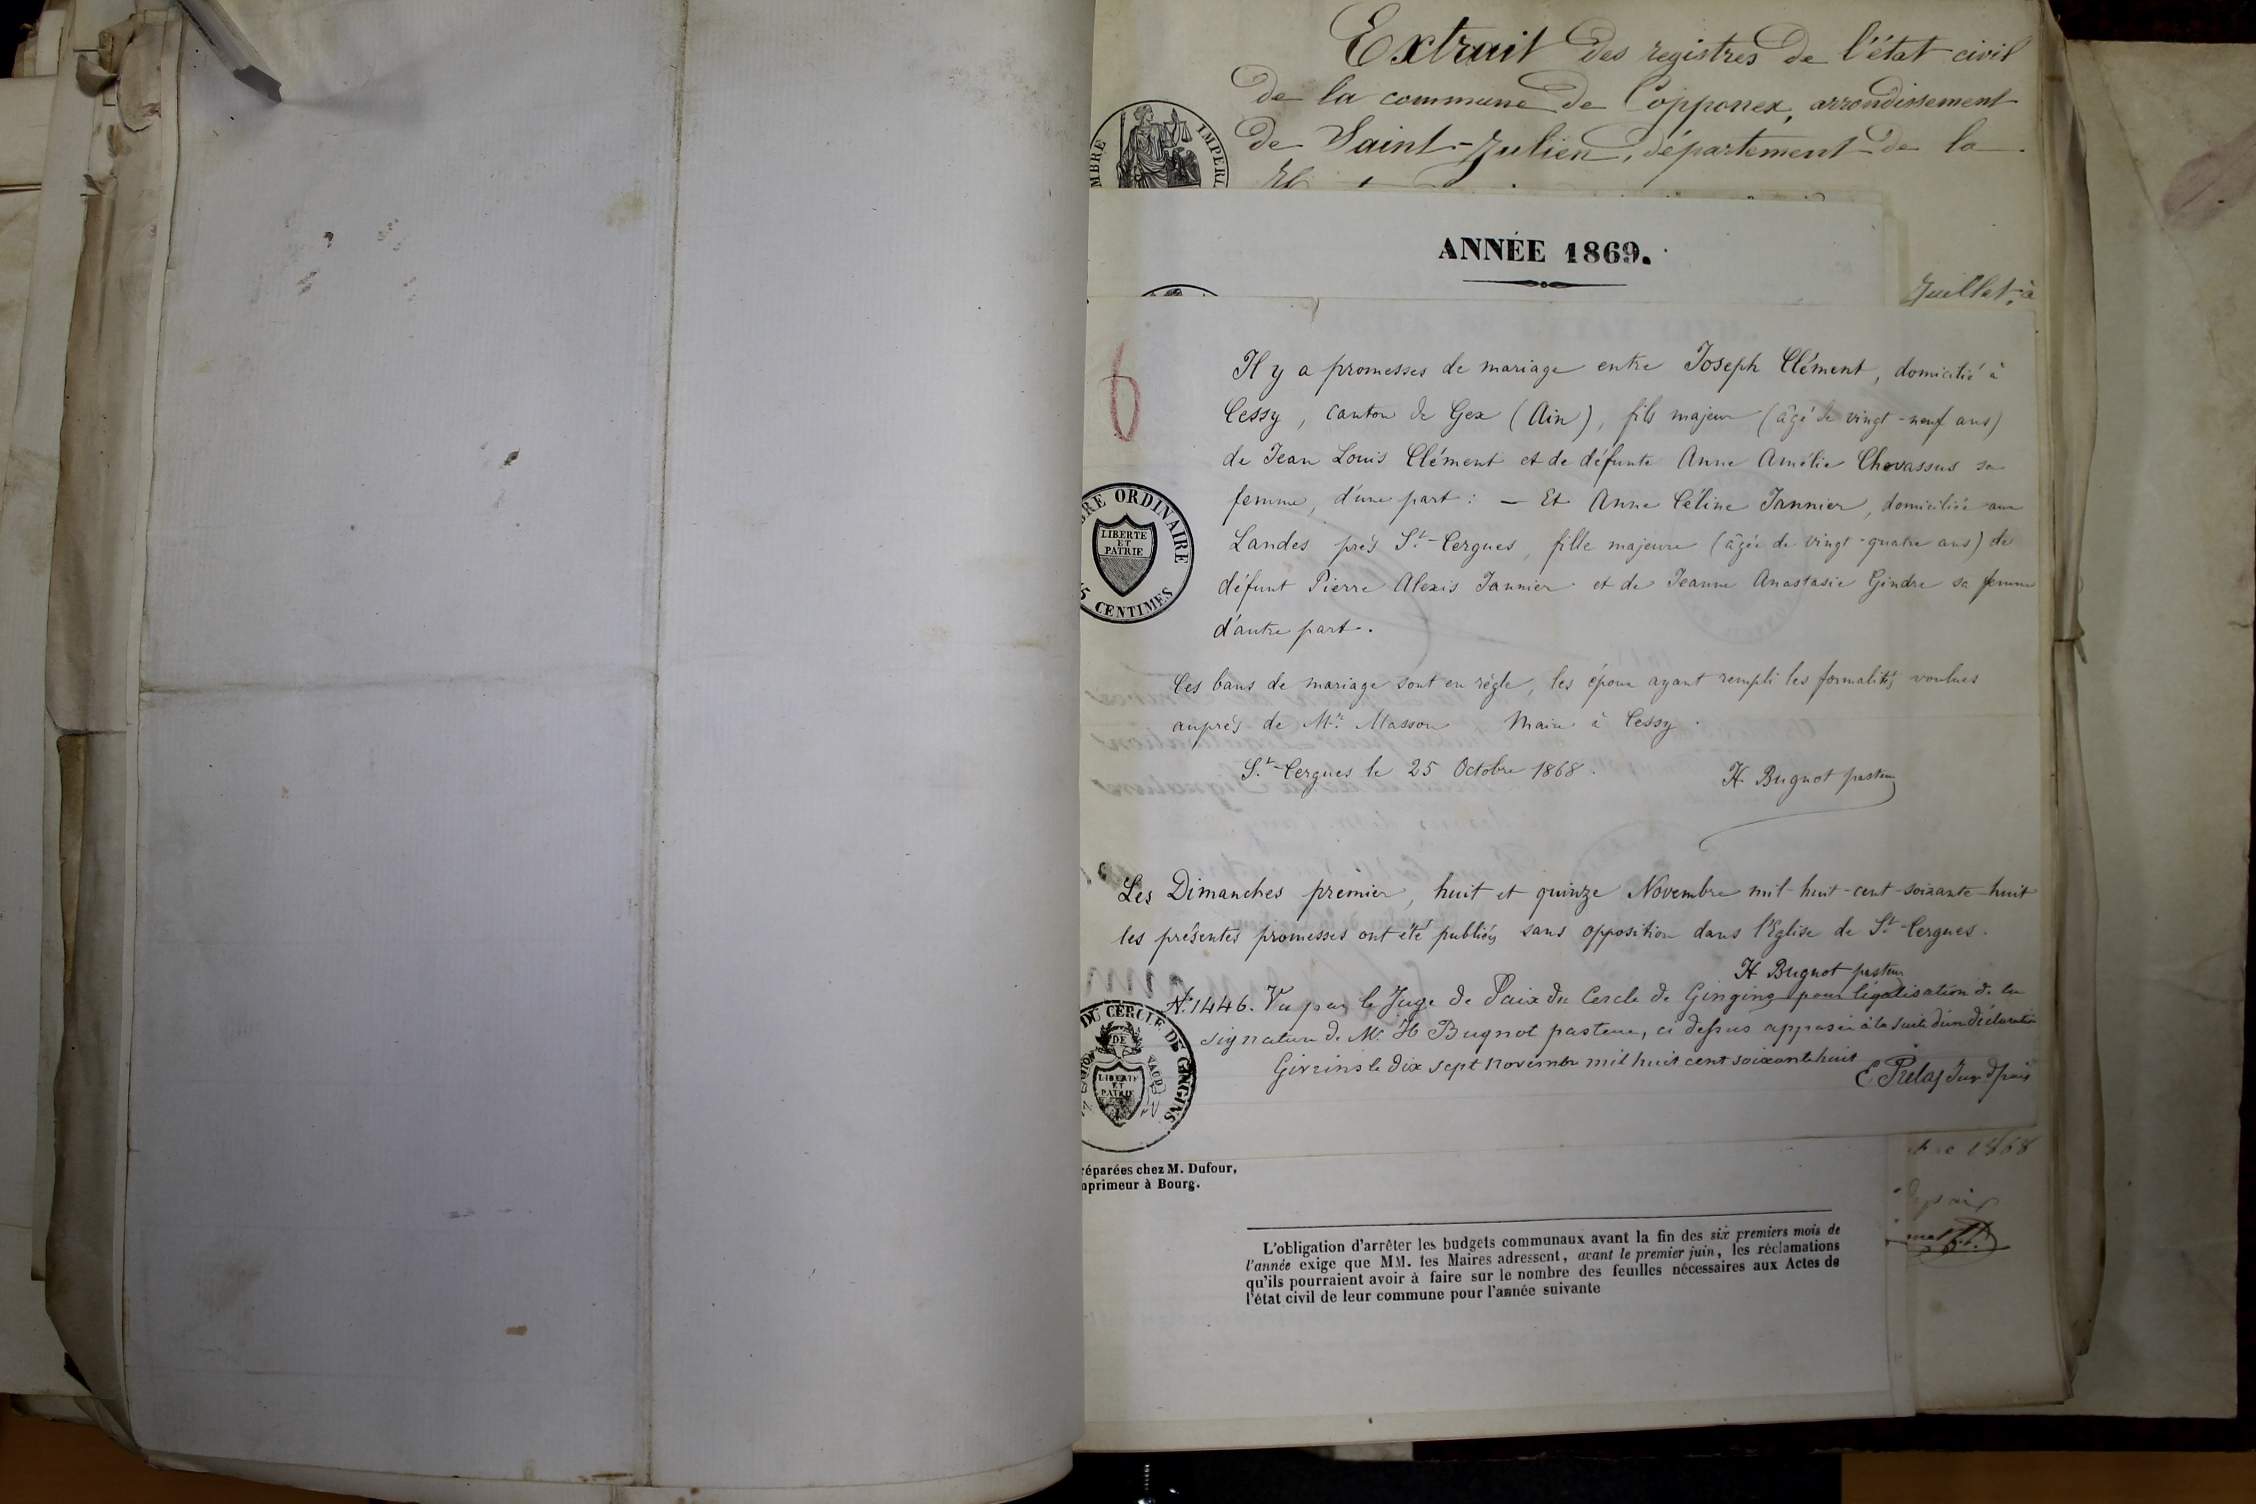 Extrait des registres de l'état civil
de la commune de Copponex, arrondissement
de Saint-Julien, département de la
MBRE IMPERI
ANNÉE 1869.
Juillet, à
6
Il y a promesses de mariage entre Joseph Clément, domicilié à
Cessy, canton de Gex (Ain), fils majeur (âgé de vingt-neuf ans)
de Jean Louis Clément et de défunte Anne Amélie Chavassus sa
femme, d'une part : — Et Anne Céline Jannier, domiciliée aux
Landes près St-Cergues, fille majeure (âgée de vingt-quatre ans) de
défunt Pierre Alexis Jannier et de Jeanne Anastasie Gindre sa femme
d'autre part.
BRE ORDINAIRE
LIBERTE
ET
PATRIE
5 CENTIMES
Ces bans de mariage sont en règle, les époux ayant rempli les formalités voulues
auprès de Mr. Masson Maire à Cessy.
St-Cergues le 25 Octobre 1868.
H. Bugnot pasteur
Les Dimanches premier, huit et quinze Novembre mil-huit-cent-soixante-huit
les présentes promesses ont été publiées sans opposition dans l'Eglise de St-Cergues.
H Bugnot pasteur
No. 1446. Vu par le Juge de Paix du Cercle de Gingins pour légalisation de la
signature de Mr. H Bugnot pasteur, ci dessus apposée à la suite d'une déclaration
Givrins le dix sept novembre mil huit cent soixante huit
E. Prélaz Juge d paix
DU CERCLE DE GINGINS
DE
VAUD
LIBERTE
ET
PATRIE
réparées chez M. Dufour,
mprimeur à Bourg.
bre 1868
L'obligation d'arrêter les budgets communaux avant la fin des six premiers mois de
l'année exige que MM. les Maires adressent, avant le premier juin, les réclamations
qu'ils pourraient avoir à faire sur le nombre des feuilles nécessaires aux Actes de
l'état civil de leur commune pour l'année suivante